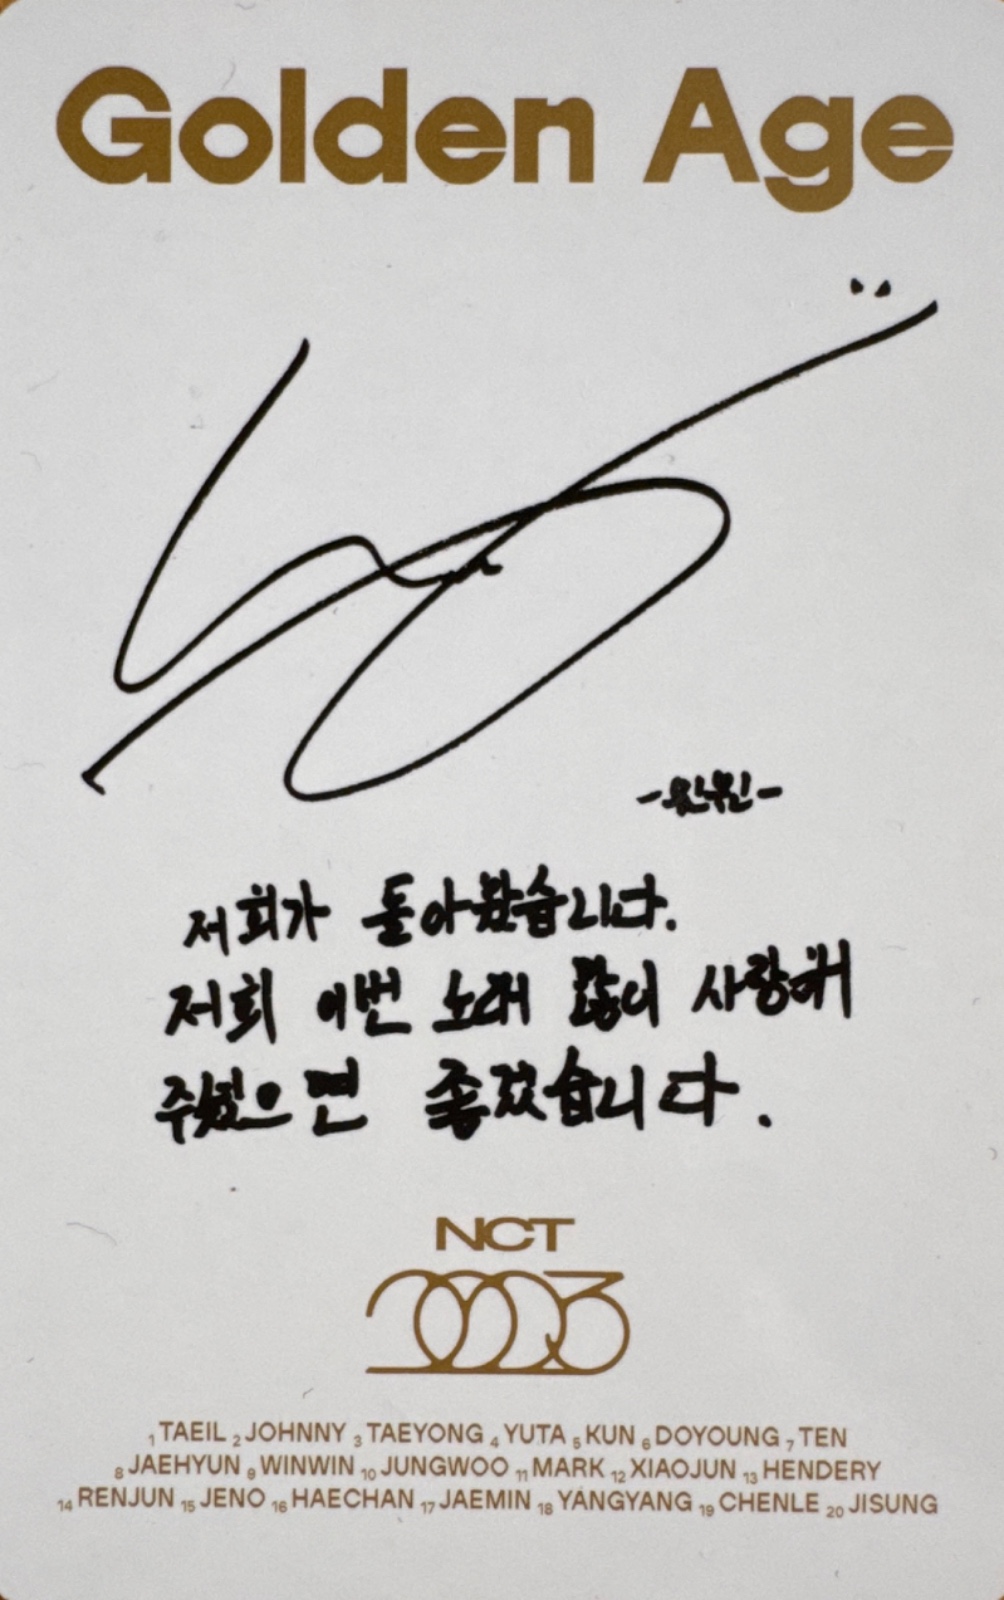 Golden Age
저희가 돌아왔습니다.
저희 이번 노래 많이 사랑해
주셨으면 좋겠습니다.
NCT
2023
1 TAEIL 2 JOHNNY 3 TAEYONG 4 YUTA 5 KUN 6 DOYOUNG 7 TEN
8 JAEHYUN 9 WINWIN 10 JUNGWOO 11 MARK 12 XIAOJUN 13 HENDERY
14 RENJUN 15 JENO 16 HAECHAN 17 JAEMIN 18 YANGYANG 19 CHENLE 20 JISUNG